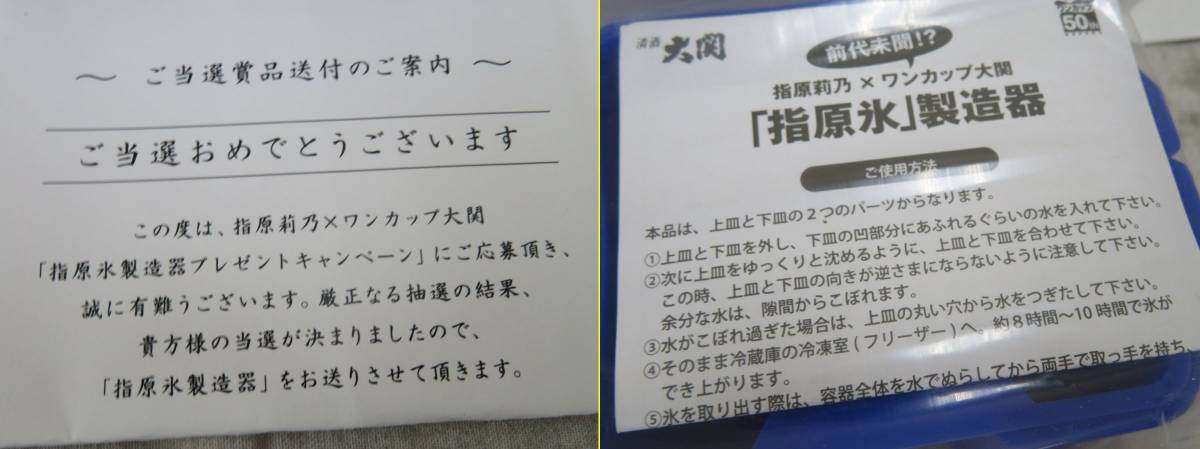 ～ ご当選賞品送付のご案内 ～
ご当選おめでとうございます
この度は、指原莉乃×ワンカップ大関
「指原氷製造器プレゼントキャンペーン」にご応募頂き、
誠に有難うございます。厳正なる抽選の結果、
貴方様の当選が決まりましたので、
「指原氷製造器」をお送りさせて頂きます。
清酒 大関
ワンカップ
50th
前代未聞!?
指原莉乃×ワンカップ大関
「指原氷」製造器
ご使用方法
本品は、上皿と下皿の2つのパーツからなります。
①上皿と下皿を外し、下皿の凹部分にあふれるぐらいの水を入れて下さい。
②次に上皿をゆっくりと沈めるように、上皿と下皿を合わせて下さい。
この時、上皿と下皿の向きが逆さまにならないように注意して下さい。
余分な水は、隙間からこぼれます。
③水がこぼれ過ぎた場合は、上皿の丸い穴から水をつぎたして下さい。
④そのまま冷蔵庫の冷凍室(フリーザー)へ。約8時間～10時間で氷が
でき上がります。
⑤氷を取り出す際は、容器全体を水でぬらしてから両手で取っ手を持ち、